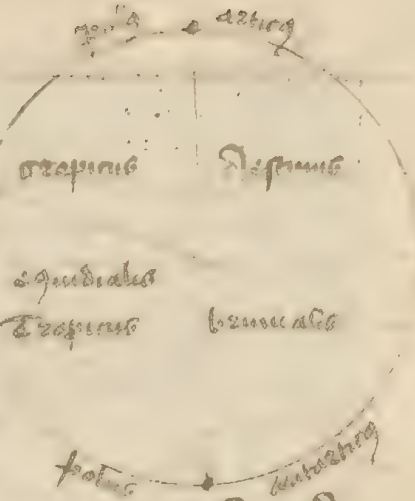 polꝰ articꝰ
tropicus Estiuus
equidialis
Tropicus brumalis
polus antarticꝰ